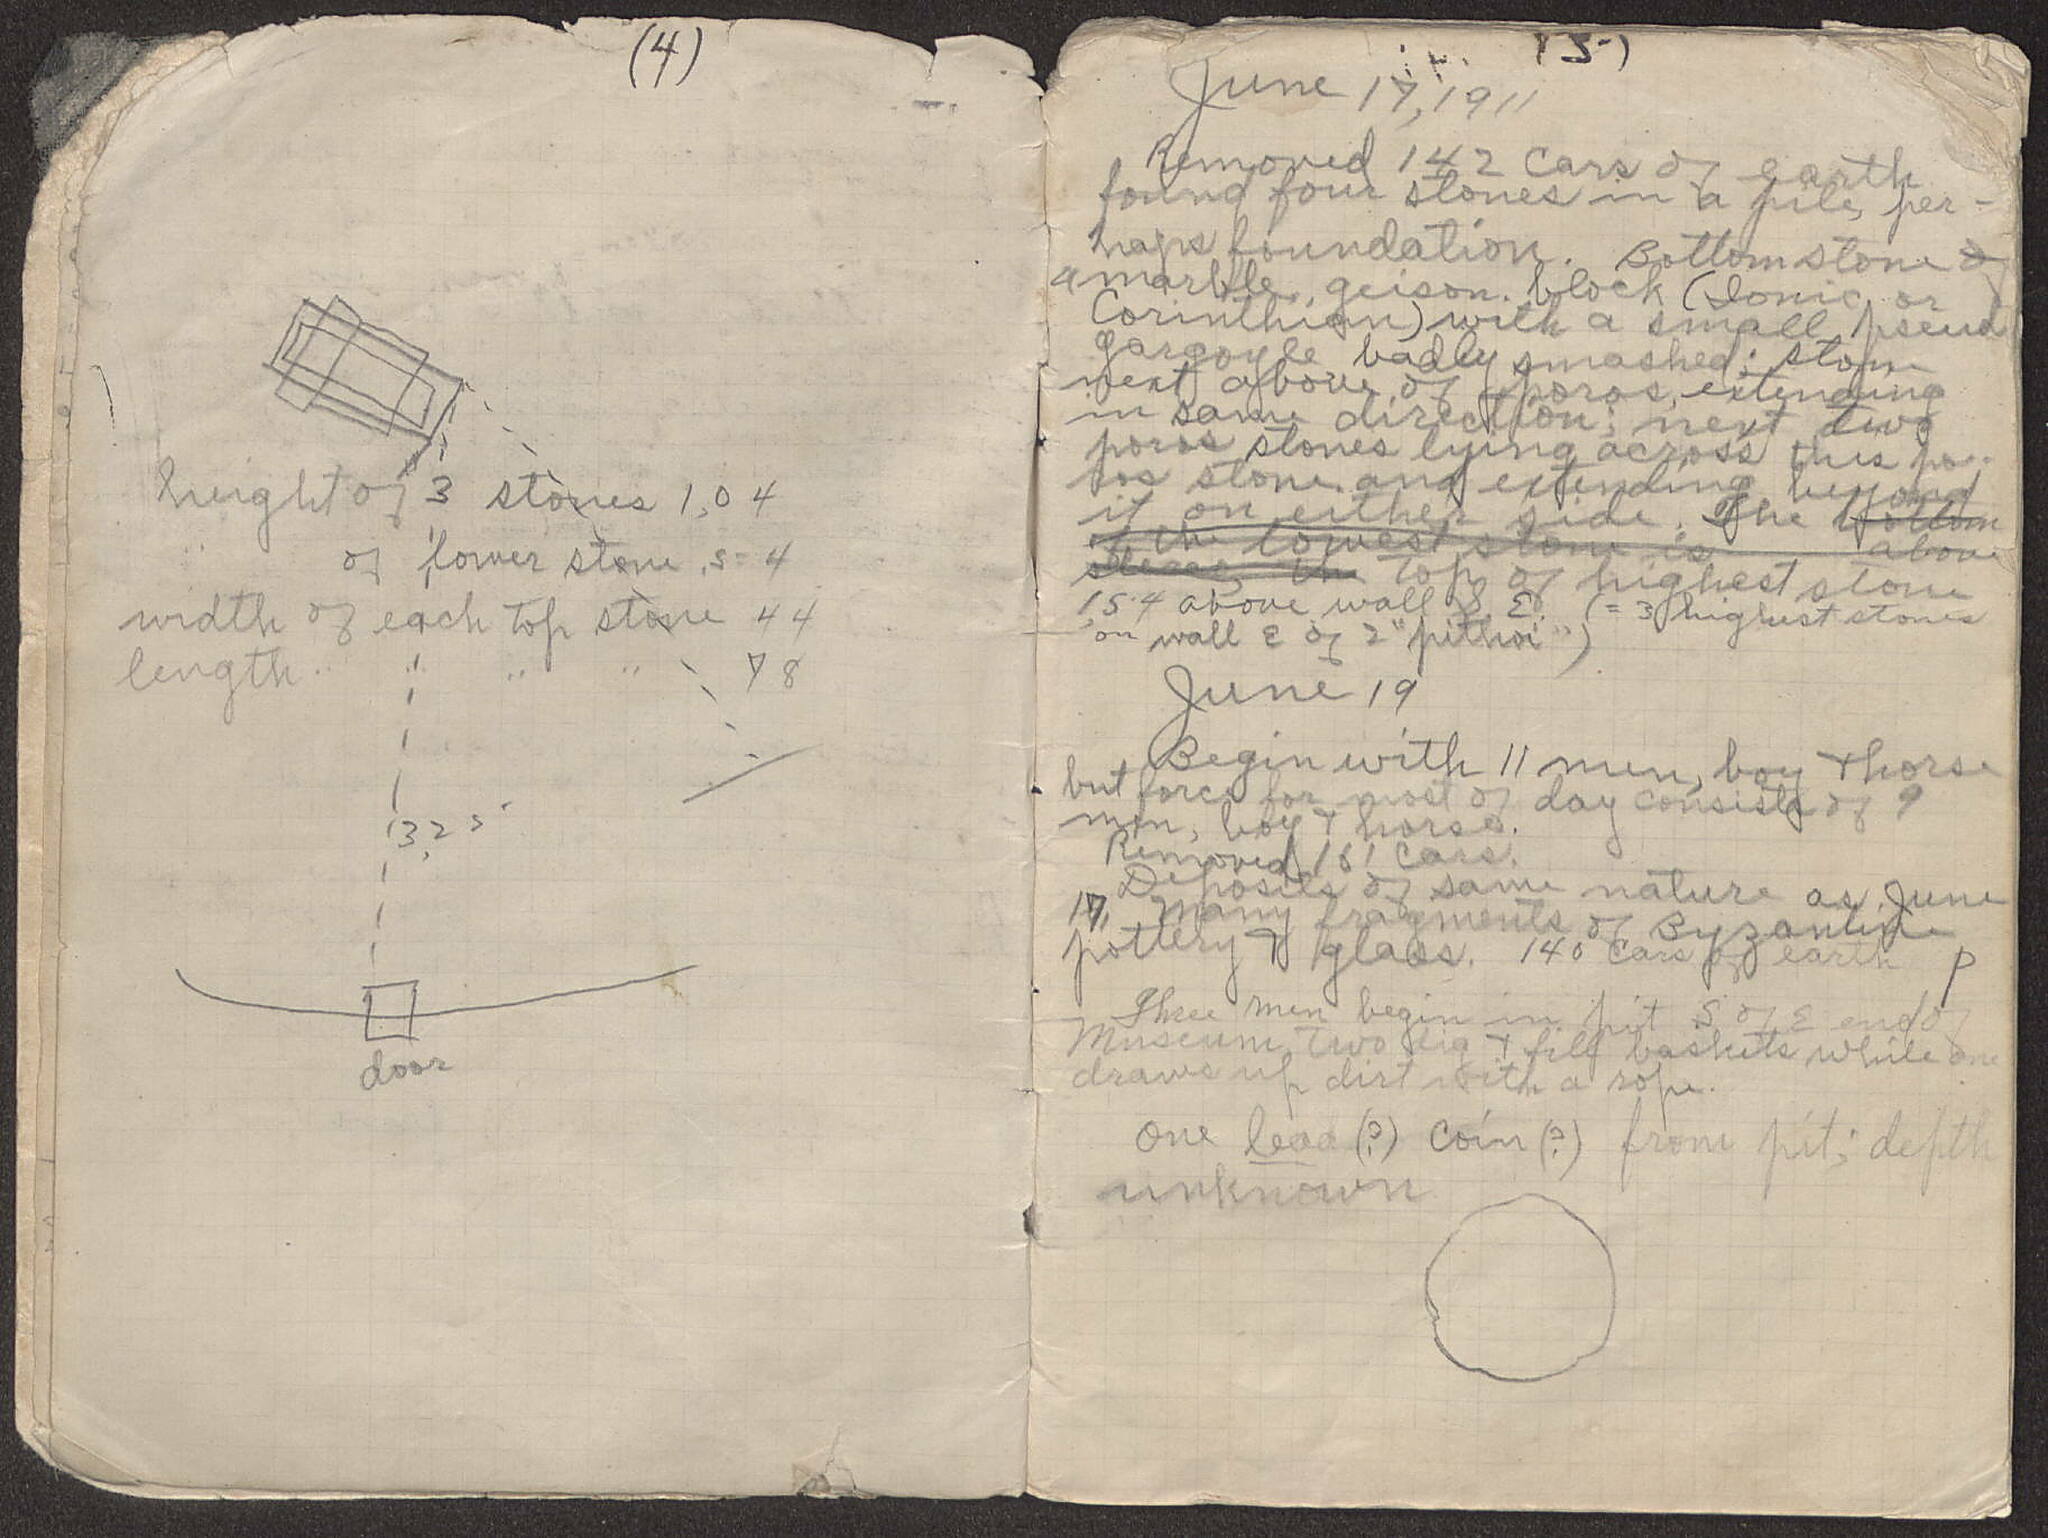 (4)
height of 3 stones 1,04
" of lower stone .54
width of each top stone 44
length " " " 78
13,25
door
(5)
June 17, 1911
Removed 142 cars of earth
found four stones in a pile, per-
haps foundation. Bottom stone of
a marble geison block (Ionic or
Corinthian) with a small pseud
gargoyle badly smashed; stone
next above of poros, extending
in same direction; next two
poros stones lying across this po-
ros stone and extending beyond
it on either side. The bottom
of the lowest stone is above
the top of highest stone
1.54 above wall S. E. (= 3 highest stones
on wall E of 2 "pithoi")
June 19
Begin with 11 men, boy + horse
but force for most of day consists of 9
men, boy + horse.
Removed 161 cars.
Deposits of same nature as June
17, Many fragments of Byzantine
pottery + glass. 140 cars of earth P
Three men begin in pit S of E end of
Museum, two dig + fill baskets while one
draws up dirt with a rope.
One lead (?) coin (?) from pit; depth
unknown